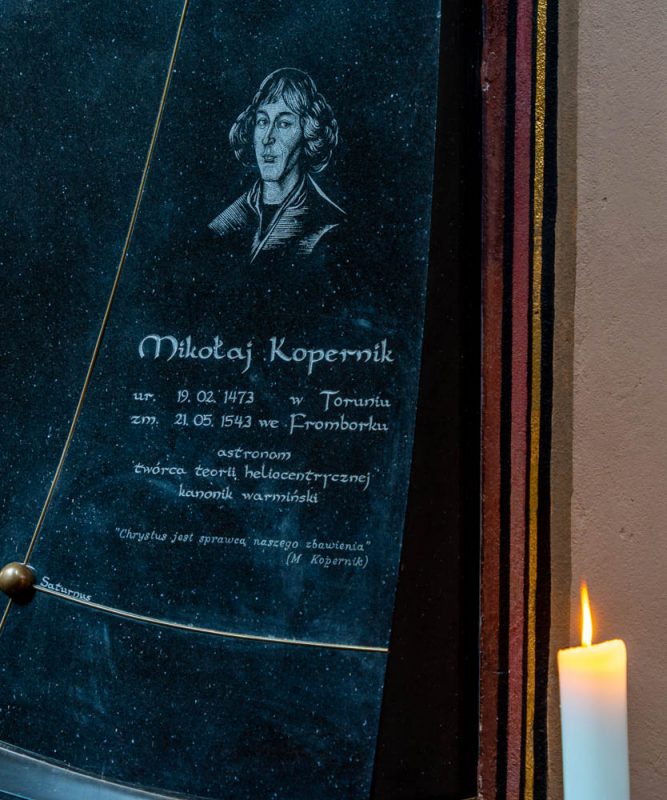 Mikołaj Kopernik
ur. 19. 02. 1473 w Toruniu
zm. 21. 05. 1543 we Fromborku
astronom
twórca teorii heliocentrycznej
kanonik warmiński
"Chrystus jest sprawcą naszego zbawienia"
(M Kopernik)
Saturnus